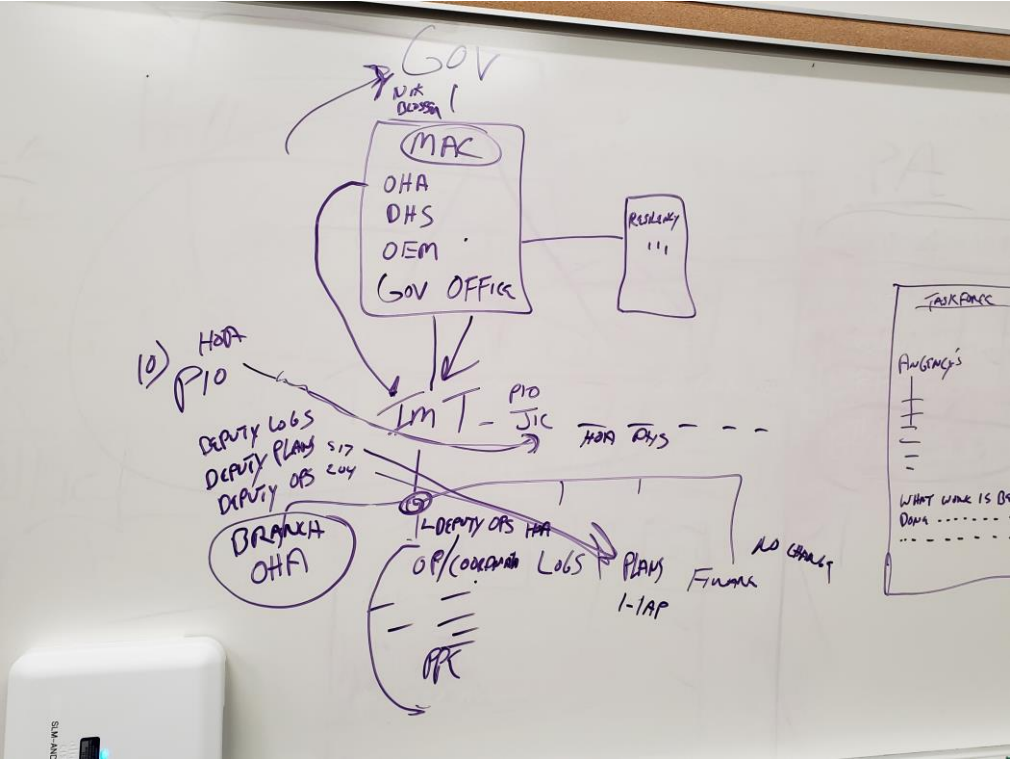 GOV
NIK
BLOSSER
MAC
OHA
DHS
OEM
GOV OFFICE
RESILIENCY
TASKFORCE
ANGENCY'S
WHAT WORK IS BE
DONE
10) PIO
HOA
IMT
PIO
JIC
HOA DHS
DEPUTY LOGS
DEPUTY PLANS 517
DEPUTY OPS 204
BRANCH
OHA
DEPUTY OPS
OP/COORDINATION LOGS PLANS FINANCE NO CHANGE
1-IAP
PPE
SLM-AND